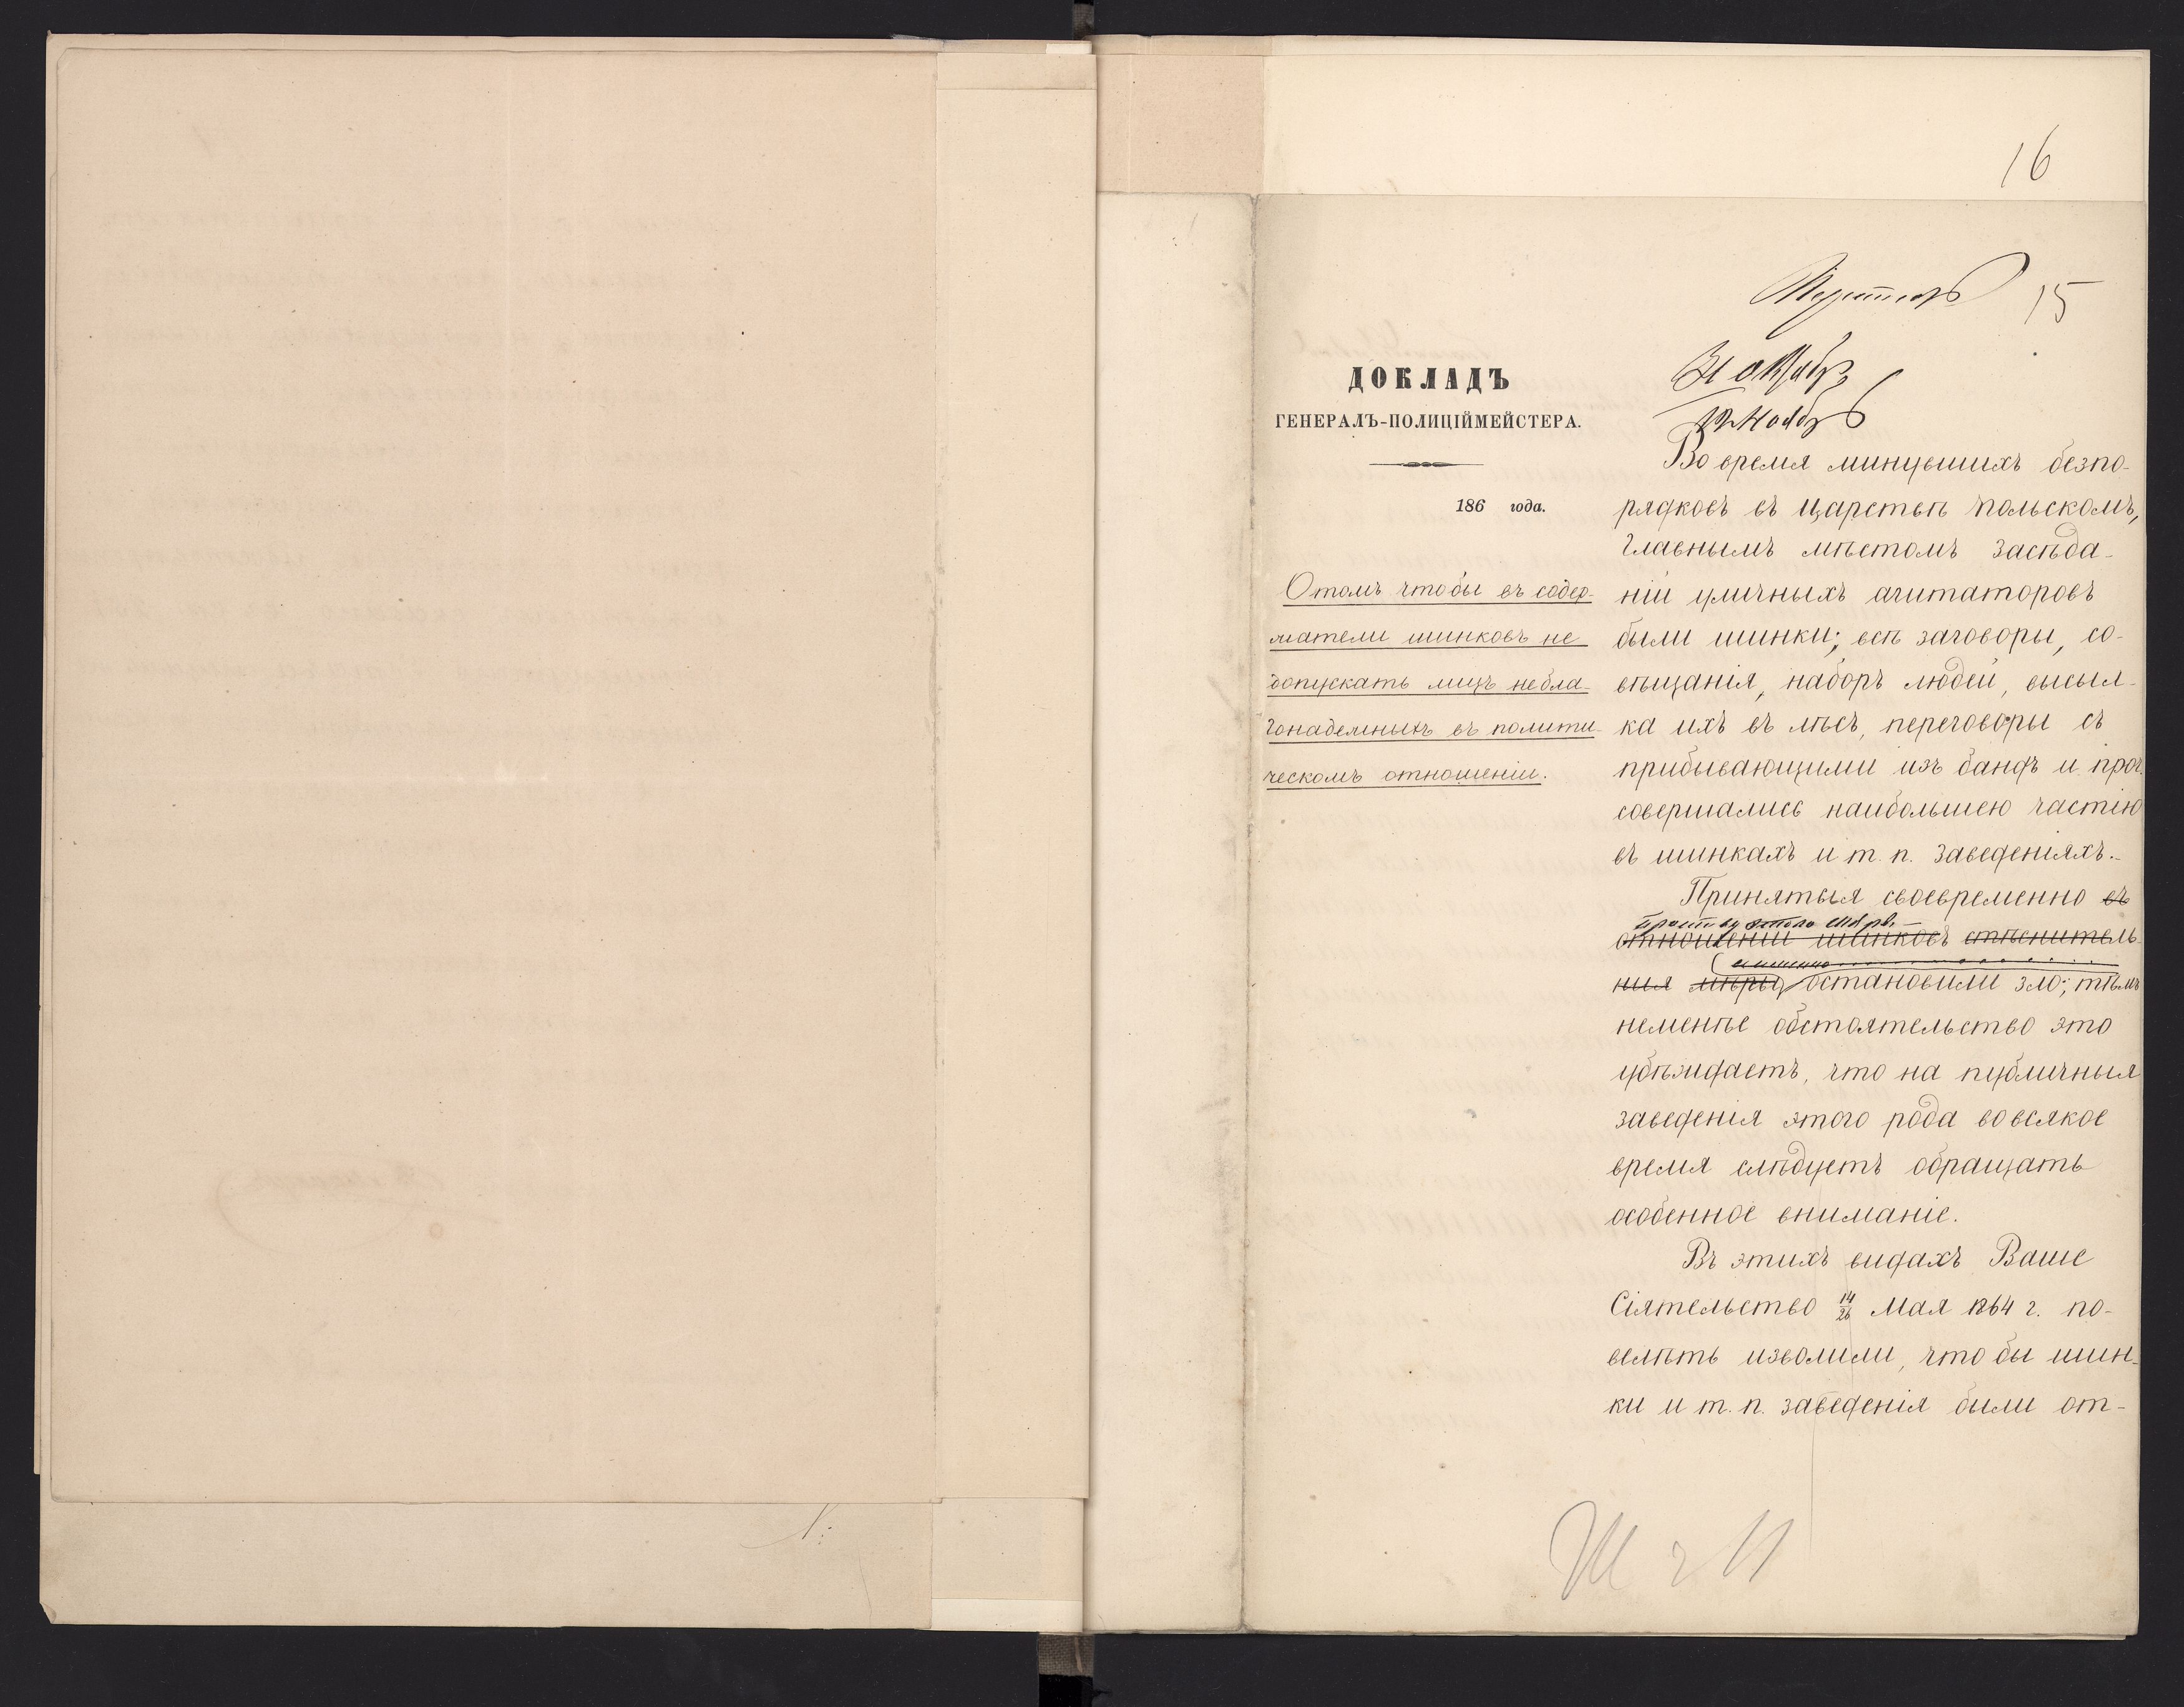 16
15
31 октябр
12 Ноябр
ДОКЛАДЪ
ГЕНЕРАЛЪ-ПОЛИЦІЙМЕЙСТЕРА.
186 года.
О томъ чтобы въ содер-
жатели шинковъ не
допускать лицъ небла-
гонадежныхъ въ полити-
ческомъ отношеніи.
Во время минувшихъ безпо-
рядковъ въ Царствѣ Польскомъ,
главнымъ мѣстомъ засѣда-
ній уличныхъ агитаторовъ
были шинки; всѣ заговоры, со-
вѣщанія, наборъ людей, высыл-
ка ихъ въ лѣсъ, переговоры съ
прибывающими изъ бандъ и проч.
совершались наибольшею частію
въ шинкахъ и т. п. заведеніяхъ.
Принятыя своевременно въ
противу этого мѣры
отношеніи шинковъ стѣснитель-
ныя мѣры, остановили зло; тѣмъ
неменѣе обстоятельство это
убѣждаетъ, что на публичныя
заведенія этого рода во всякое
время слѣдуетъ обращать
особенное вниманіе.
Въ этихъ видахъ Ваше
Сіятельство 14/26 Мая 1864 г. по-
велѣть изволили, что бы шин-
ки и т. п. заведенія были от-